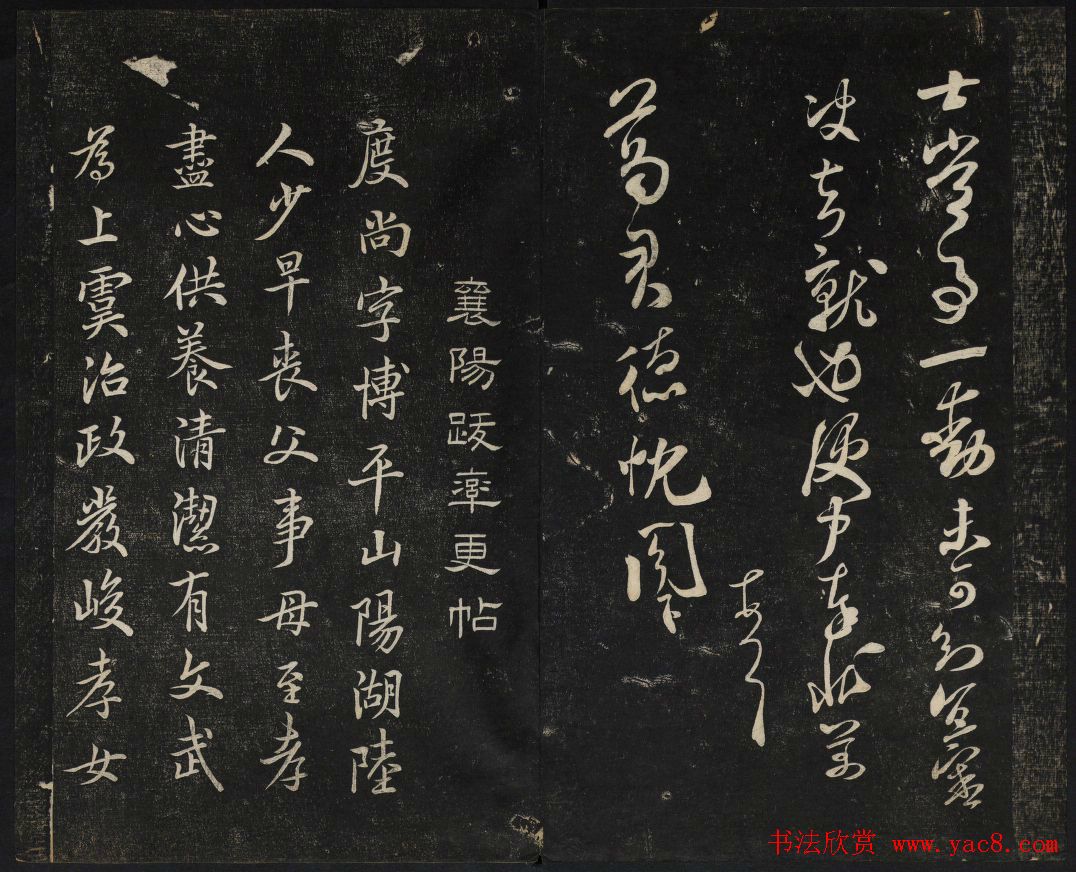 士
一
決去就也便中奉狀
葛君德忱閣下
襄陽跋率更帖
度尚字博平山陽湖陸
人少早喪父事母至孝
盡心供養清潔有文武
為上虞治政嚴峻孝女
书法欣赏 www.yac8.com